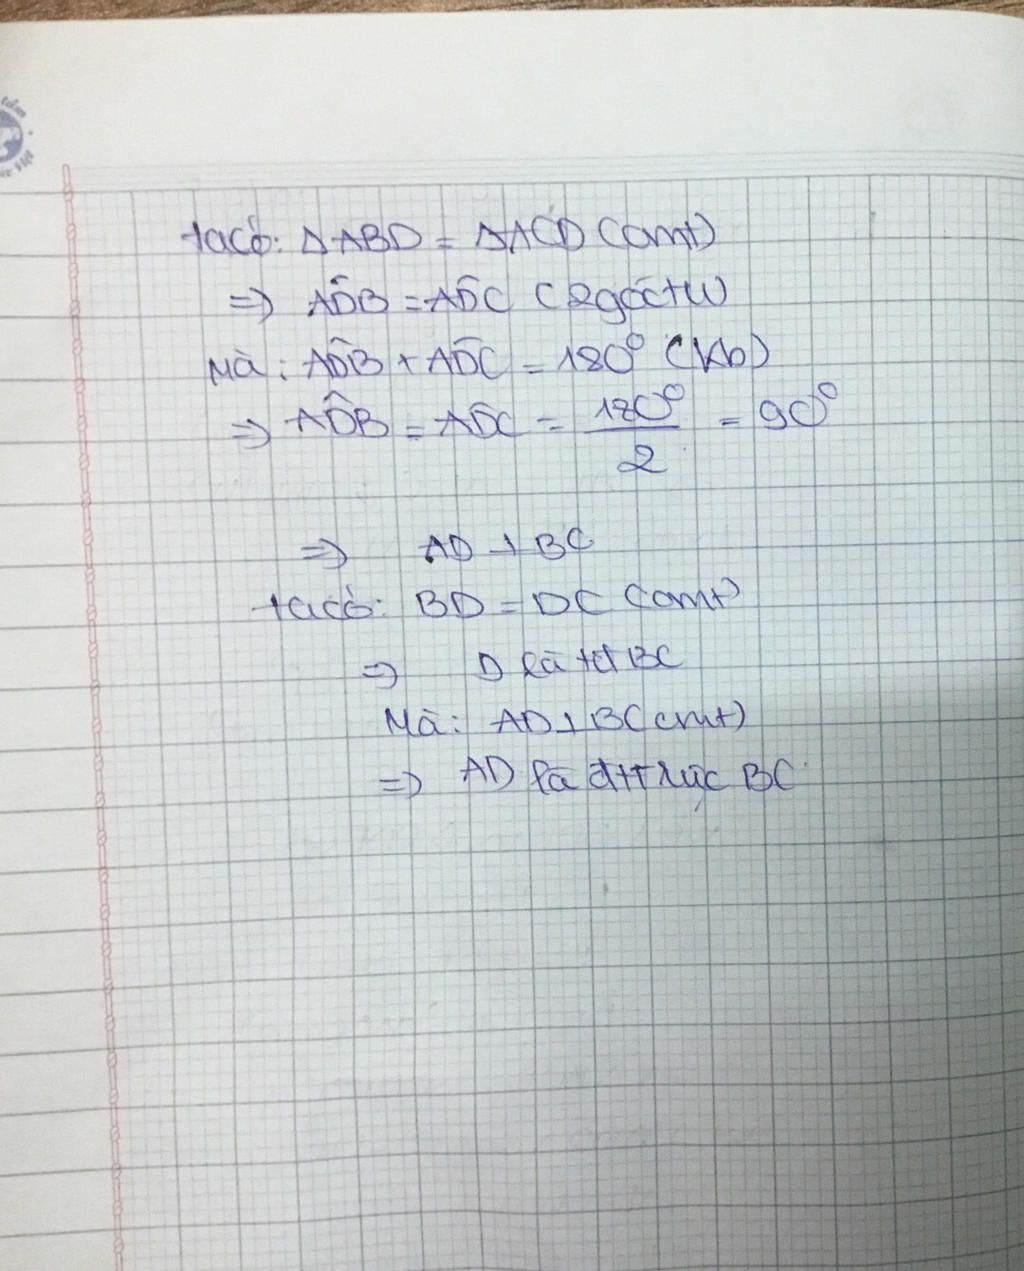 ta có: ΔABD = ΔACD (cmt)
=> AD̂B = AD̂C (2 góc tư)
Mà: AD̂B + AD̂C = 180° (kb)
=> AD̂B = AD̂C = 180°/2 = 90°
=> AD ⊥ BC
ta có: BD = DC (cmt)
=> D là tđ BC
Mà: AD ⊥ BC (cmt)
=> AD là đtt rực BC